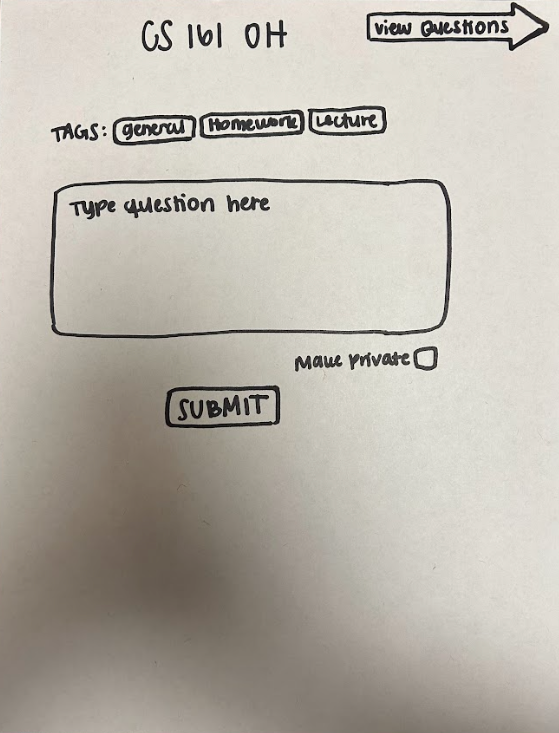 CS 161 OH
view Questions
TAGS: general Homework Lecture
Type question here
Make private
SUBMIT